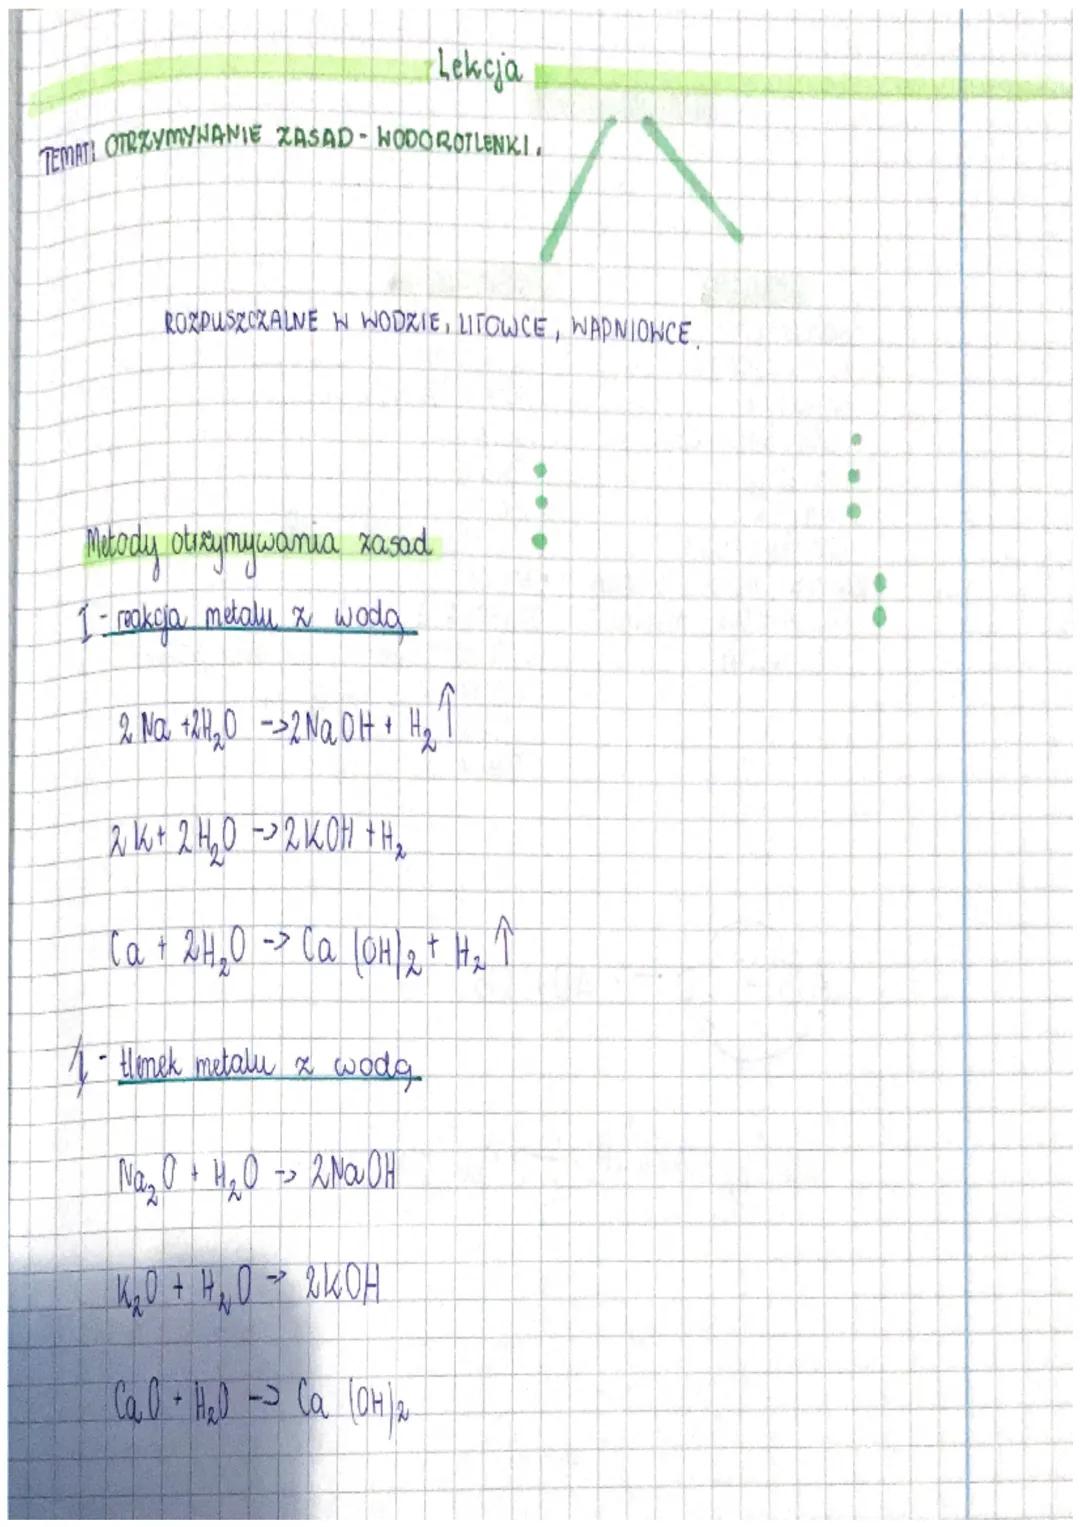 Lekcja
TEMAT: OTRZYMYWANIE ZASAD - WODOROTLENKI.
ROZPUSZCZALNE W WODZIE, LITOWCE, WAPNIOWCE.
Metody otrzymywania zasad
I - reakcja metalu z wodą
2 Na + 2H₂O -> 2NaOH + H₂↑
2 K + 2H₂O -> 2KOH + H₂
Ca + 2H₂O -> Ca (OH)₂ + H₂ ↑
- tlenek metalu z wodą
Na₂O + H₂O -> 2NaOH
K₂O + H₂O -> 2KOH
CaO + H₂O -> Ca (OH)₂